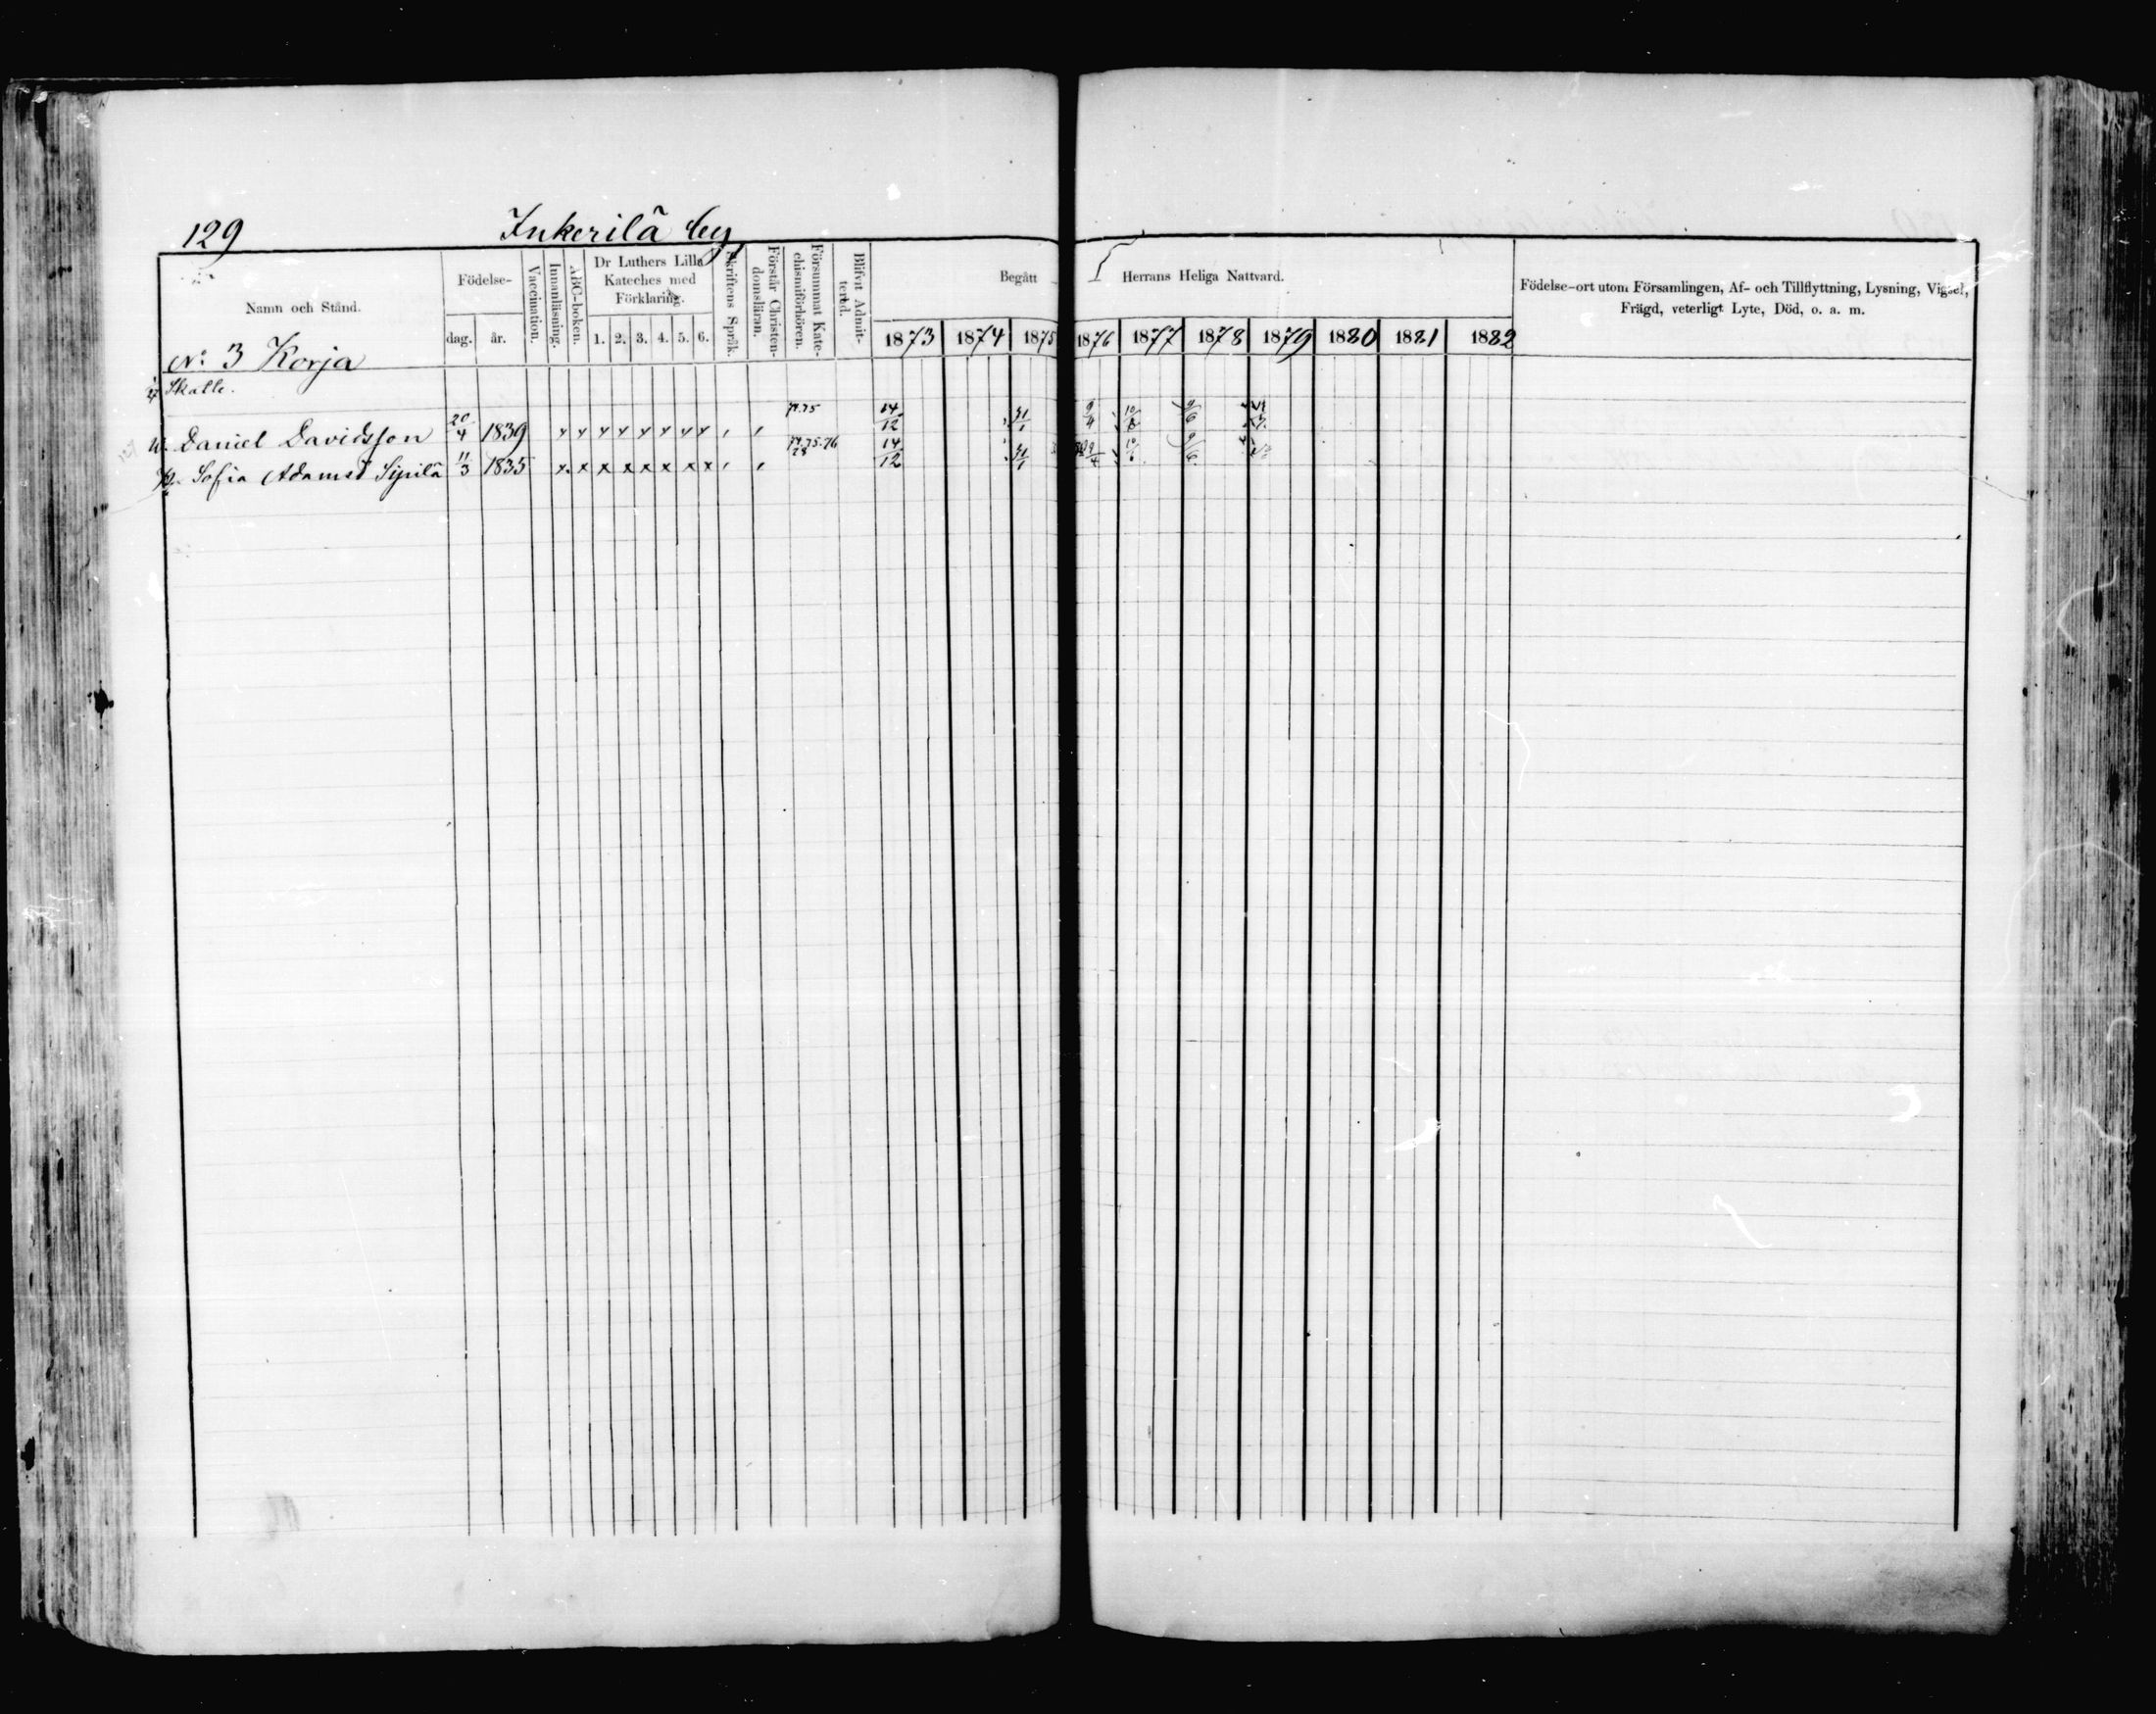 129 Inkerilä by
Namn och Stånd.
Födelse-
dag.
år.
Vaccination.
Innanläsning.
ABC-boken.
Dr Luthers Lilla
Kateches med
Förklaring.
1. 2. 3. 4. 5. 6.
Skriftens Språk.
Förstår Christen-
domsläran.
Försummat Kate-
chismiförhören.
Blifvit Admit-
terad.
Begått Herrans Heliga Nattvard.
1873 1874 1875 1876 1877 1878 1879 1880 1881 1882
Födelse-ort utom Församlingen, Af- och Tillflyttning, Lysning, Vigsel,
Frägd, veterligt Lyte, Död, o. a. m.
No 3 Korja
Skatte.
Daniel Davidsson 20/4 1839 x x x x x x x x 14/12 31/1 9/4 9/6
Sofia Adamsd Sipilä 11/3 1835 x x x x x x x x 74.75.76 78 14/12 31/1 9/4 9/6